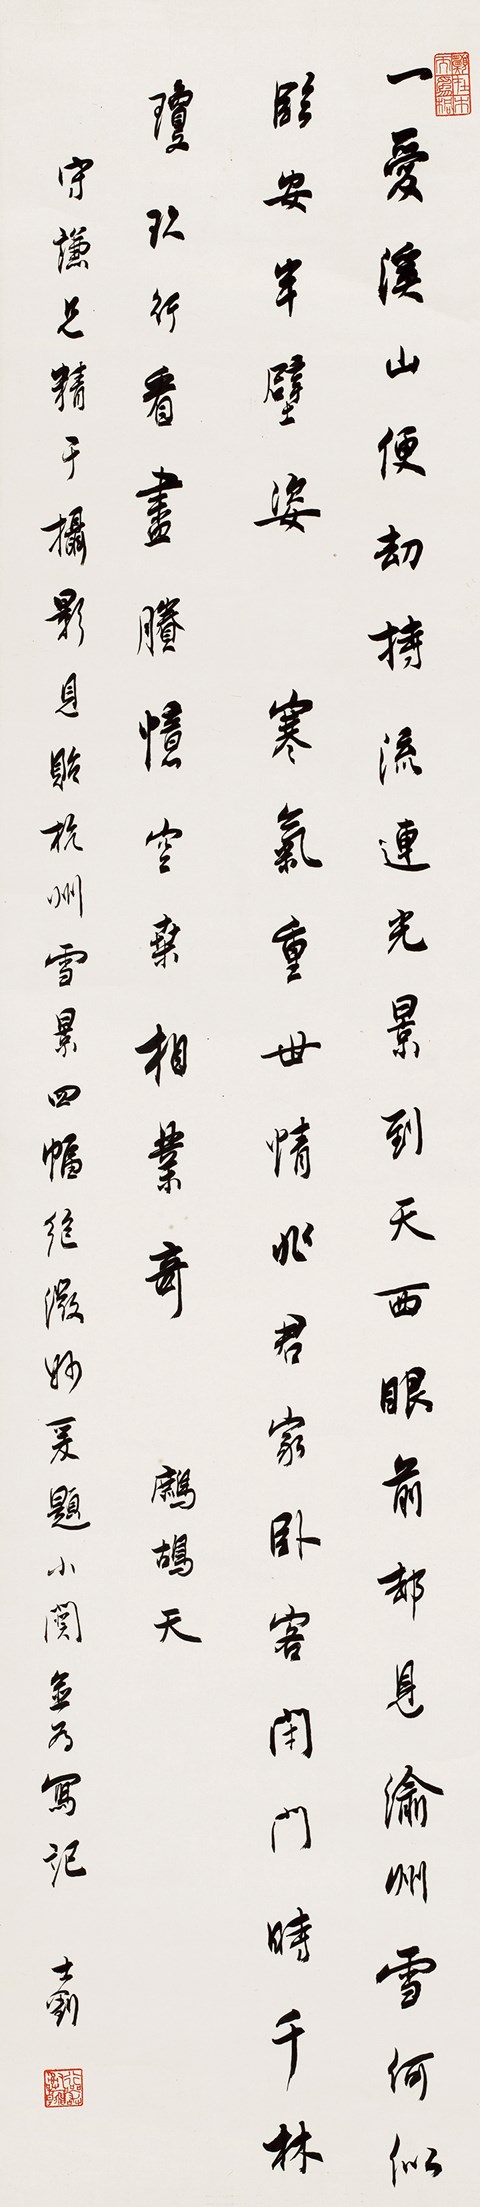 一愛溪山便劫持流連光景到天西眼前都見渝州雪何似
臨安半壁姿 寒氣重世情非君家臥客閉門時千林
瓊玖行看盡賸憶空桑相業奇 鷓鴣天
守謙兄精于攝影見貽杭州雪景四幅絕微妙爰題小闋並為寫記 士釗